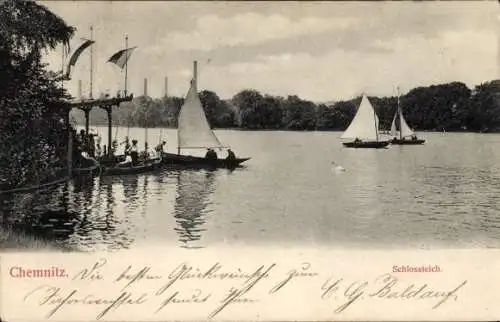 Chemnitz.
Schlossteich.
Die besten Glückwünsche zum
Jahreswechsel sendet Ihr
C. G. Baldauf